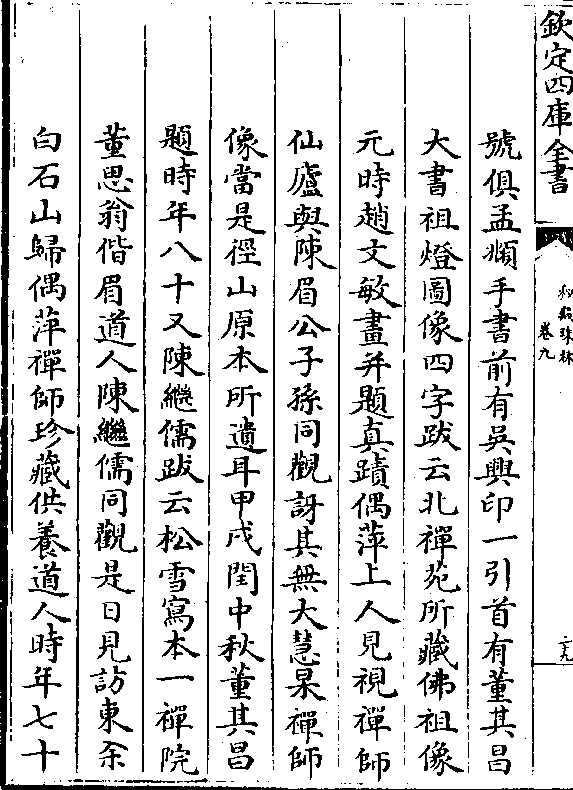 欽定四庫全書
秘殿珠林
卷九
號俱孟頫手書前有吳興印一引首有董其昌
大書祖燈圖像四字跋云北禪苑所藏佛祖像
元時趙文敏畫并題真蹟偶萍上人見視禪師
仙廬與陳眉公子孫同觀訝其無大慧杲禪師
像當是徑山原本所遺耳甲戌閏中秋董其昌
題時年八十又陳繼儒跋云松雪寫本一禪院
董思翁偕眉道人陳繼儒同觀是日見訪東佘
白石山歸偶萍禪師珍藏供養道人時年七十